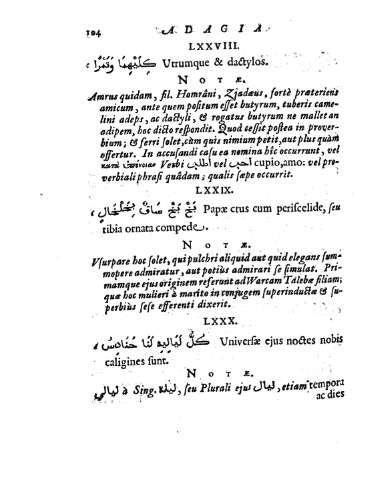 104 ADAGIA
LXXVIII.
كِلَيْهِمَا وَتَمْرًا Utrumque & dactylos.
NOTÆ.
Amrus quidam, fil. Hamrâni, Zjadæus, fortè præteriens
amicum, ante quem positum esset butyrum, tuberis came-
lini adeps, ac dactyli, & rogatus butyrum ne mallet an
adipem, hoc dicto respondit. Quod sæpe postea in prover-
bium; & ferri solet, cùm quis nimium petit, aut plus quàm
offertur. In accusandi casu ea nomina hîc occurrunt, vel
Verbi اطلب vel احب cupio, amo: vel pro-
verbiali phrasi quâdam; qualis sæpe occurrit.
LXXIX.
بَخْ بَخْ سَاقٌ بِخَلْخَالٍ Papæ crus cum periscelide, seu
tibia ornata compede.
NOTÆ.
Usurpare hoc solet, qui pulchri aliquid aut quid elegans sum-
mopere admiratur, aut potiùs admirari se simulat. Pri-
mamque ejus originem referunt ad Warcam Talebæ filiam;
quæ hoc mulieri à marito in conjugem superinductæ & su-
perbiùs sese efferenti dixerit.
LXXX.
كُلُّ لَيَالِيهِ لَنَا حَنَادِسُ Universæ ejus noctes nobis
caligines sunt.
NOTÆ.
ليالي à Sing. ليلة, seu Plurali ejus ليال, etiam tempora
ac dies